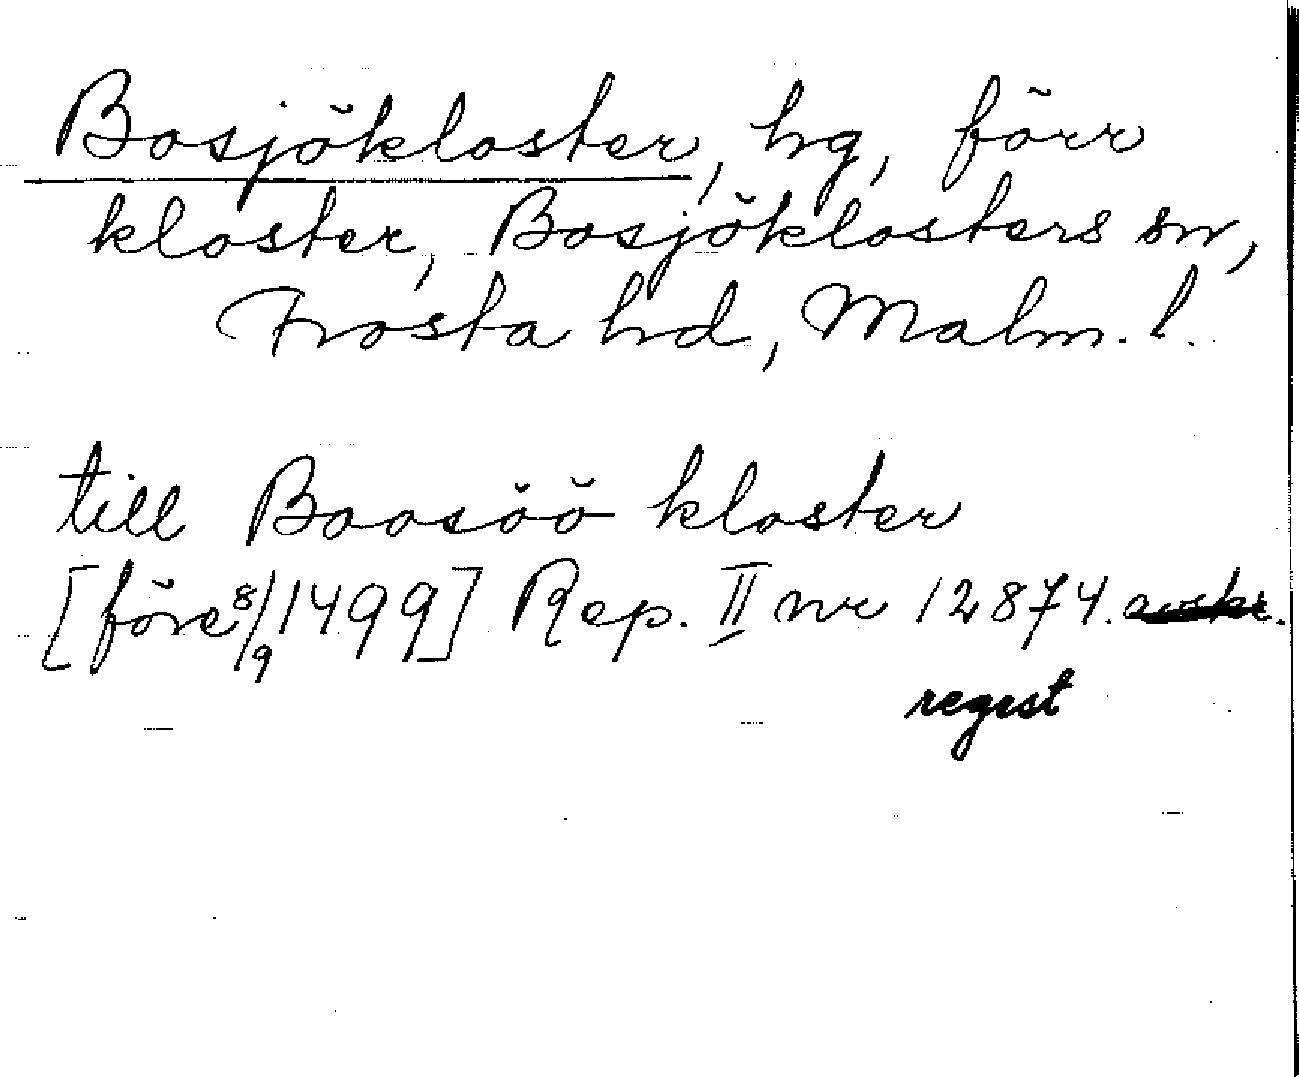 Bosjökloster, hg, förr
kloster, Bosjöklosters sn,
Frosta hd, Malm. l.
till Boosöö kloster
[före 8/9 1499] Rep. II nr 12874. avskr.
regest